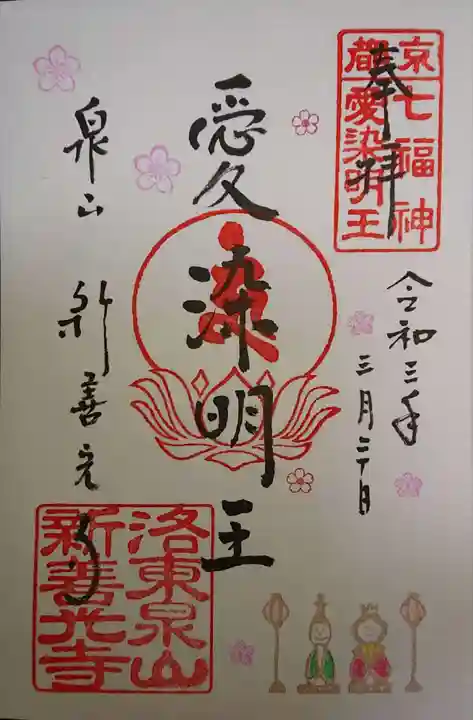 奉拝
京七福神
都愛染明王
令和三年
三月二十日
愛染明王
泉山 新善光寺
洛東泉山
新善光寺